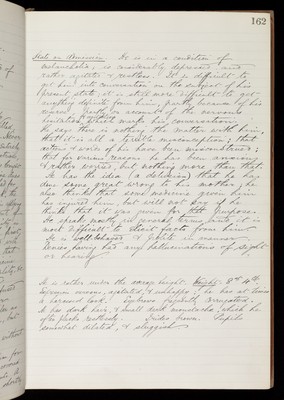 162
State on Admission. He is in a condition of
melancholia, is considerably depressed and
rather agitated & restless. It is difficult to
get him into conversation on the subject of his
present state; it is still more difficult to get
anything definite from him, partly because of his
reserve partly on account of the nervous
irritated state marks his conversation.
He says there is nothing the matter with him;
that it is all a terrible misconception; that
actions & words of his have been misconstrued;
that for various reasons he has been annoying
& rather worried, but nothing more than that.
He has the idea (a delusion) that he has
done some great wrong to his mother; he
also thinks that some medicine given him
has injured him, but will not say if he
thinks that it was given for that purpose.
He speaks mostly in words, and it is
most difficult to elicit facts from him.
He is well behaved & polite in manner.
Denies having had any hallucinations of sight
or hearing.
He is rather under the average height. Weight 8st 4lb.
Expression anxious, agitated, & unhappy; he has at times
a harassed look. Eyebrows
He has dark hair, & small dark moustache, which he
often restlessly. Irides brown. Pupils
somewhat dilated, & sluggish